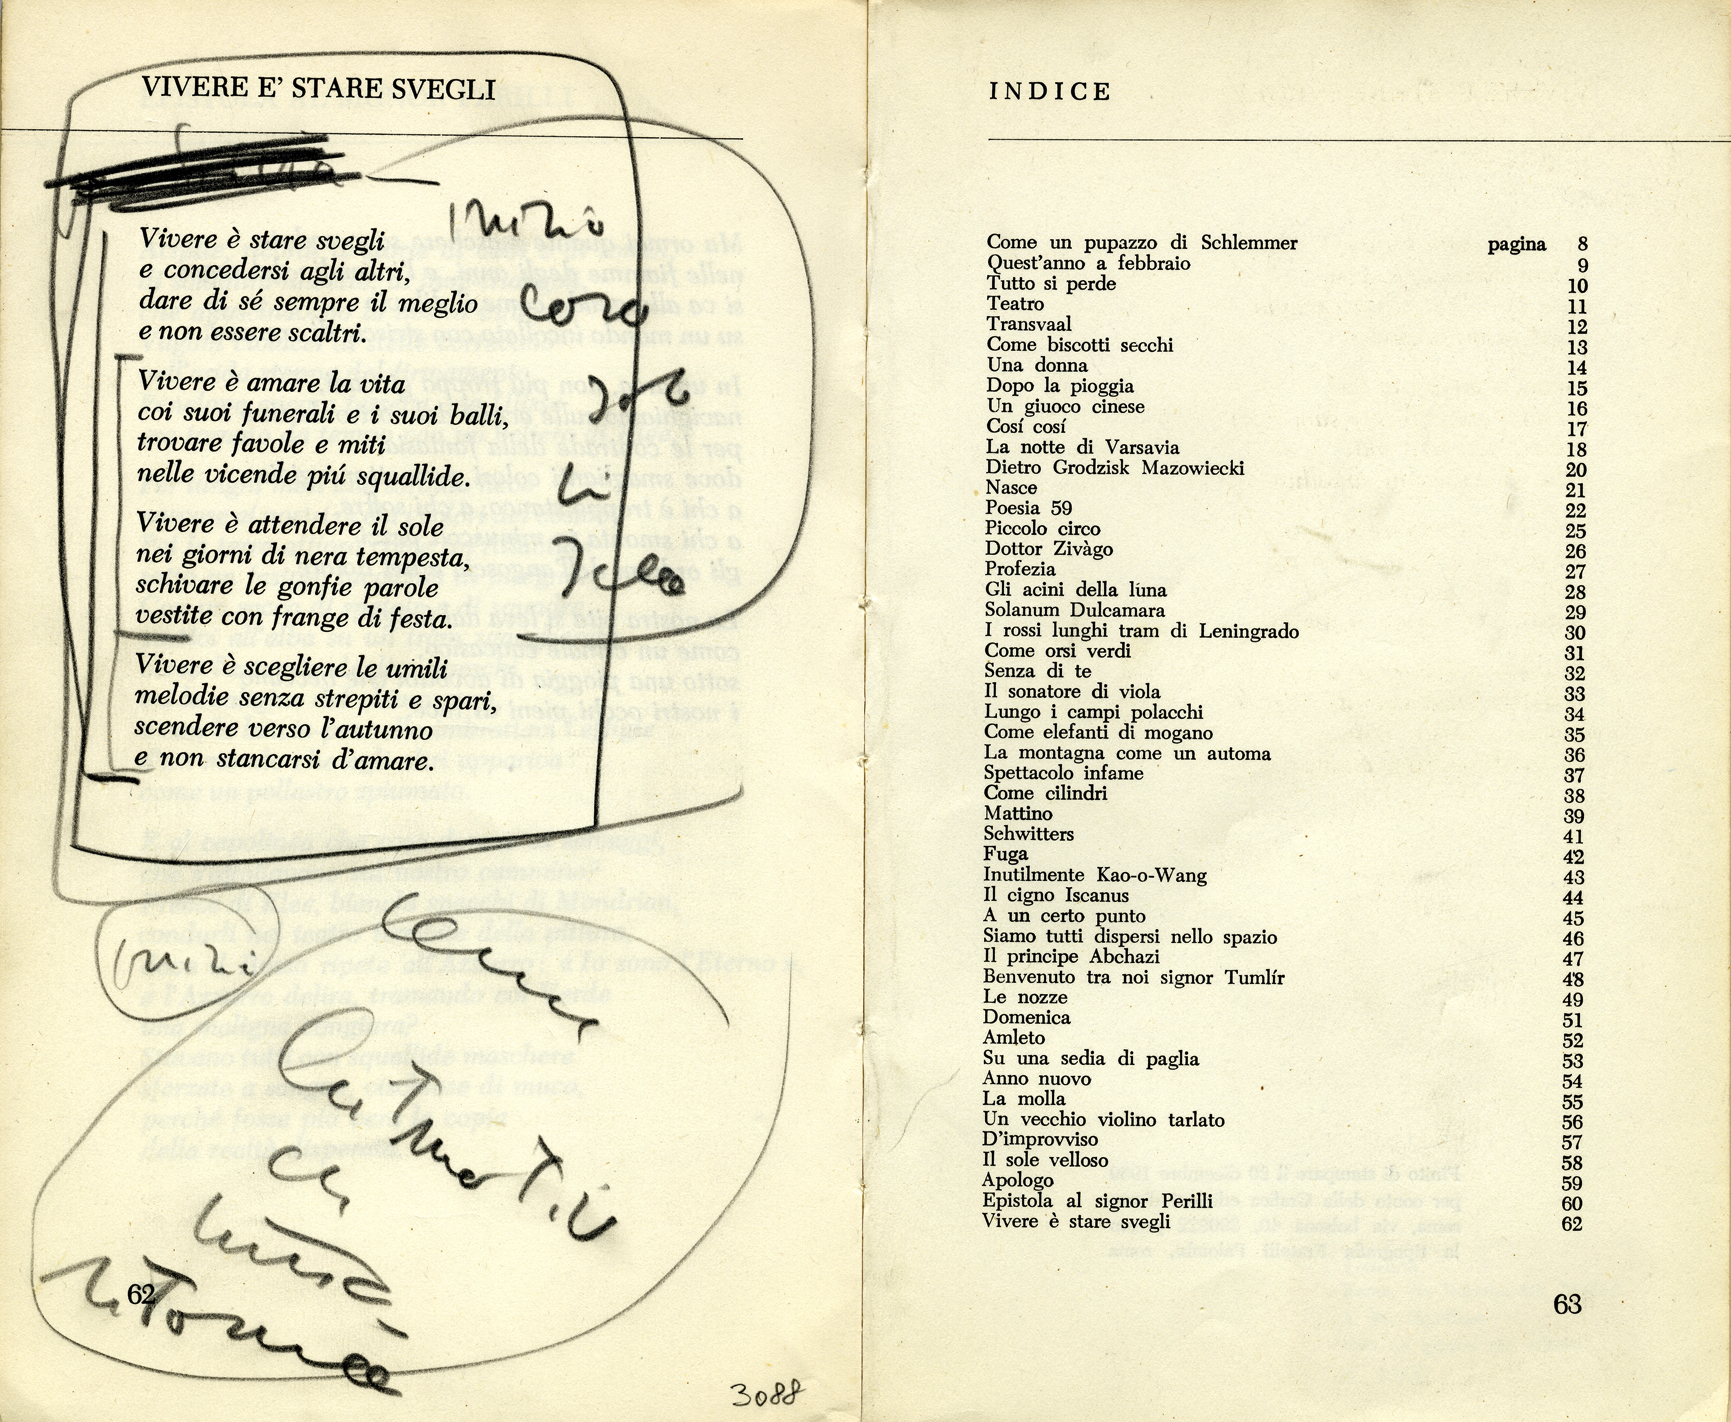 VIVERE E' STARE SVEGLI
inizio
Vivere è stare svegli
e concedersi agli altri,
dare di sé sempre il meglio
e non essere scaltri.
coro
Vivere è amare la vita
coi suoi funerali e i suoi balli,
trovare favole e miti
nelle vicende piú squallide.
Vivere è attendere il sole
nei giorni di nera tempesta,
schivare le gonfie parole
vestite con frange di festa.
Vivere è scegliere le umili
melodie senza strepiti e spari,
scendere verso l'autunno
e non stancarsi d'amare.
come
leit
motiv
che
ritorna
62
3088
INDICE
Come un pupazzo di Schlemmer pagina 8
Quest'anno a febbraio 9
Tutto si perde 10
Teatro 11
Transvaal 12
Come biscotti secchi 13
Una donna 14
Dopo la pioggia 15
Un giuoco cinese 16
Cosí cosí 17
La notte di Varsavia 18
Dietro Grodzisk Mazowiecki 20
Nasce 21
Poesia 59 22
Piccolo circo 25
Dottor Zivàgo 26
Profezia 27
Gli acini della luna 28
Solanum Dulcamara 29
I rossi lunghi tram di Leningrado 30
Come orsi verdi 31
Senza di te 32
Il sonatore di viola 33
Lungo i campi polacchi 34
Come elefanti di mogano 35
La montagna come un automa 36
Spettacolo infame 37
Come cilindri 38
Mattino 39
Schwitters 41
Fuga 42
Inutilmente Kao-o-Wang 43
Il cigno Iscanus 44
A un certo punto 45
Siamo tutti dispersi nello spazio 46
Il principe Abchazi 47
Benvenuto tra noi signor Tumlír 48
Le nozze 49
Domenica 51
Amleto 52
Su una sedia di paglia 53
Anno nuovo 54
La molla 55
Un vecchio violino tarlato 56
D'improvviso 57
Il sole velloso 58
Apologo 59
Epistola al signor Perilli 60
Vivere è stare svegli 62
63